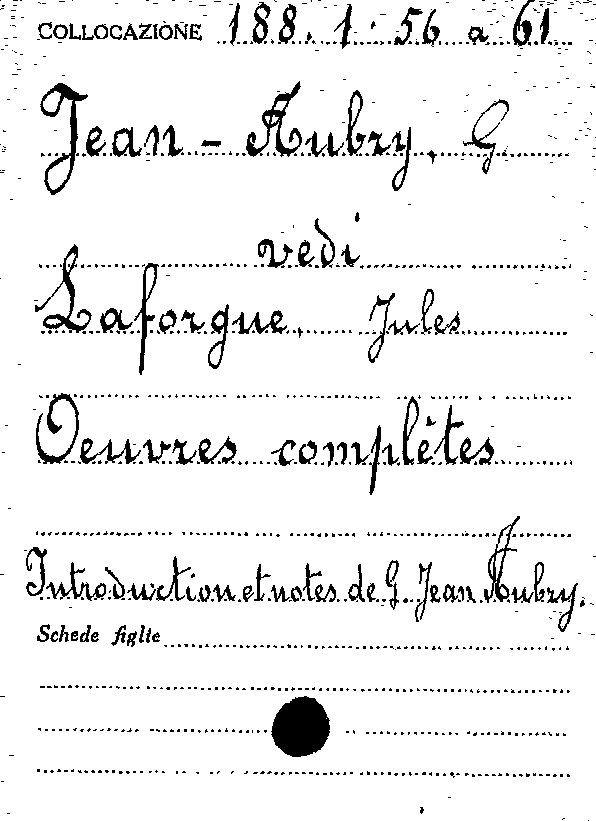 COLLOCAZIONE 188. 1. 56 a 61
Jean - Aubry, G
vedi
Laforgue, Jules
Oeuvres complètes
Introduction et notes de G. Jean Aubry.
Schede figlie